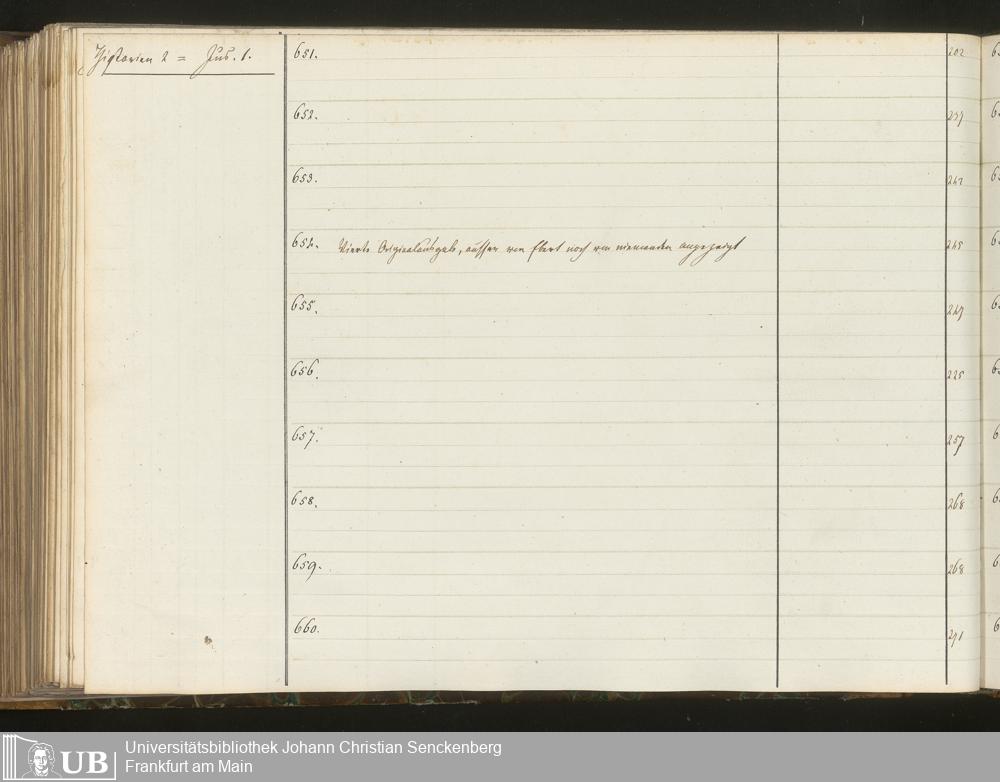 Historien 2 = Jus. 1.
651. 202
652. 237
653. 242
654. Vierte Originalausgabe, ausser von Ebert noch von niemanden angezeigt 245
655. 249
656. 225
657. 257
658. 268
659. 268
660. 271
UB
Universitätsbibliothek Johann Christian Senckenberg
Frankfurt am Main